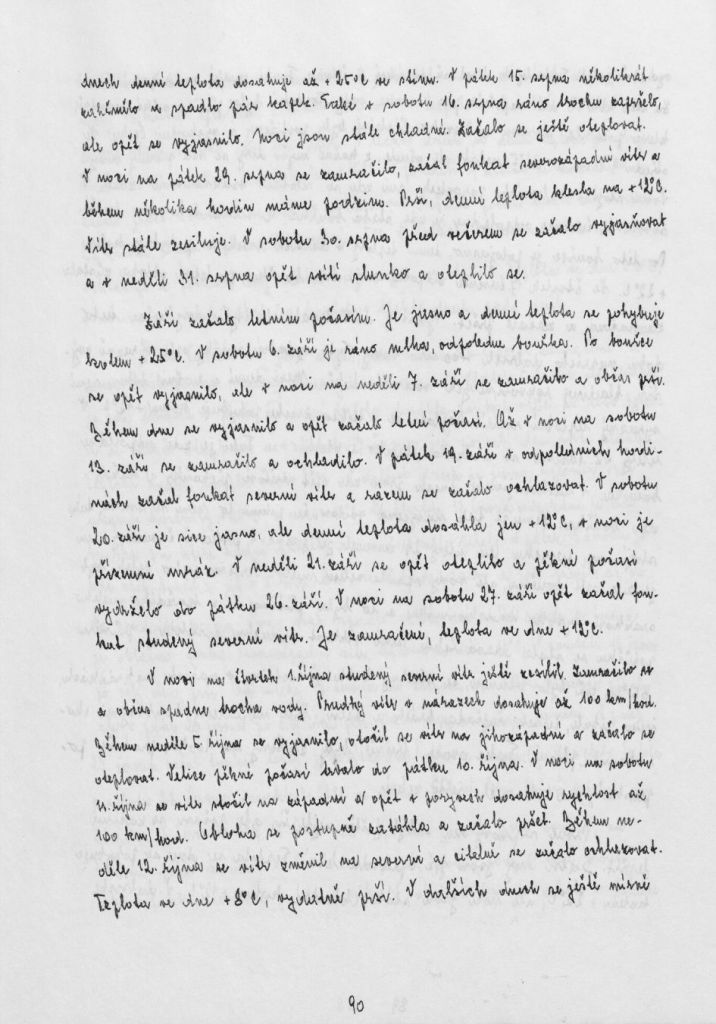 dnech denní teplota dosahuje až +25°C ve stínu. V pátek 15. srpna několikrát
zahřmělo a spadlo pár kapek. Také v sobotu 16. srpna ráno trochu zapršelo,
ale opět se vyjasnilo. Noci jsou stále chladné. Začalo se ještě oteplovat.
V noci na pátek 29. srpna se zamračilo, začal foukat severozápadní vítr a
během několika hodin máme podzim. Prší, denní teplota klesla na +12°C.
Vítr stále zesiluje. V sobotu 30. srpna před večerem se začalo vyjasňovat
a v neděli 31. srpna opět svítí slunko a oteplilo se.
Září začalo letním počasím. Je jasno a denní teplota se pohybuje
kolem +25°C. V sobotu 6. září je ráno mlha, odpoledne bouřka. Po bouřce
se opět vyjasnilo, ale v noci na neděli 7. září se zamračilo a občas prší.
Během dne se vyjasnilo a opět začalo letní počasí. Až v noci na sobotu
13. září se zamračilo a ochladilo. V pátek 19. září v odpoledních hodi-
nách začal foukat severní vítr a rázem se začalo ochlazovat. V sobotu
20. září je sice jasno, ale denní teplota dosáhla jen +12°C, v noci je
přízemní mráz. V neděli 21. září se opět oteplilo a pěkné počasí
vydrželo do pátku 26. září. V noci na sobotu 27. září opět začal fou-
kat studený severní vítr. Je zamračené, teplota ve dne +12°C.
V noci na čtvrtek 1. října studený severní vítr ještě zesílil. Zamračilo se
a občas spadne trocha vody. Prudký vítr v nárazech dosahuje až 100 km/hod.
Během neděle 5. října se vyjasnilo, otočil se vítr na jihozápadní a začalo se
oteplovat. Velice pěkné počasí trvalo do pátku 10. října. V noci na sobotu
11. října se vítr stočil na západní a opět v poryvech dosahuje rychlost až
100 km/hod. Obloha se postupně zatáhla a začalo pršet. Během ne-
děle 12. října se vítr změnil na severní a citelně se začalo ochlazovat.
Teplota ve dne +8°C, vydatně prší. V dalších dnech se ještě mírně
90